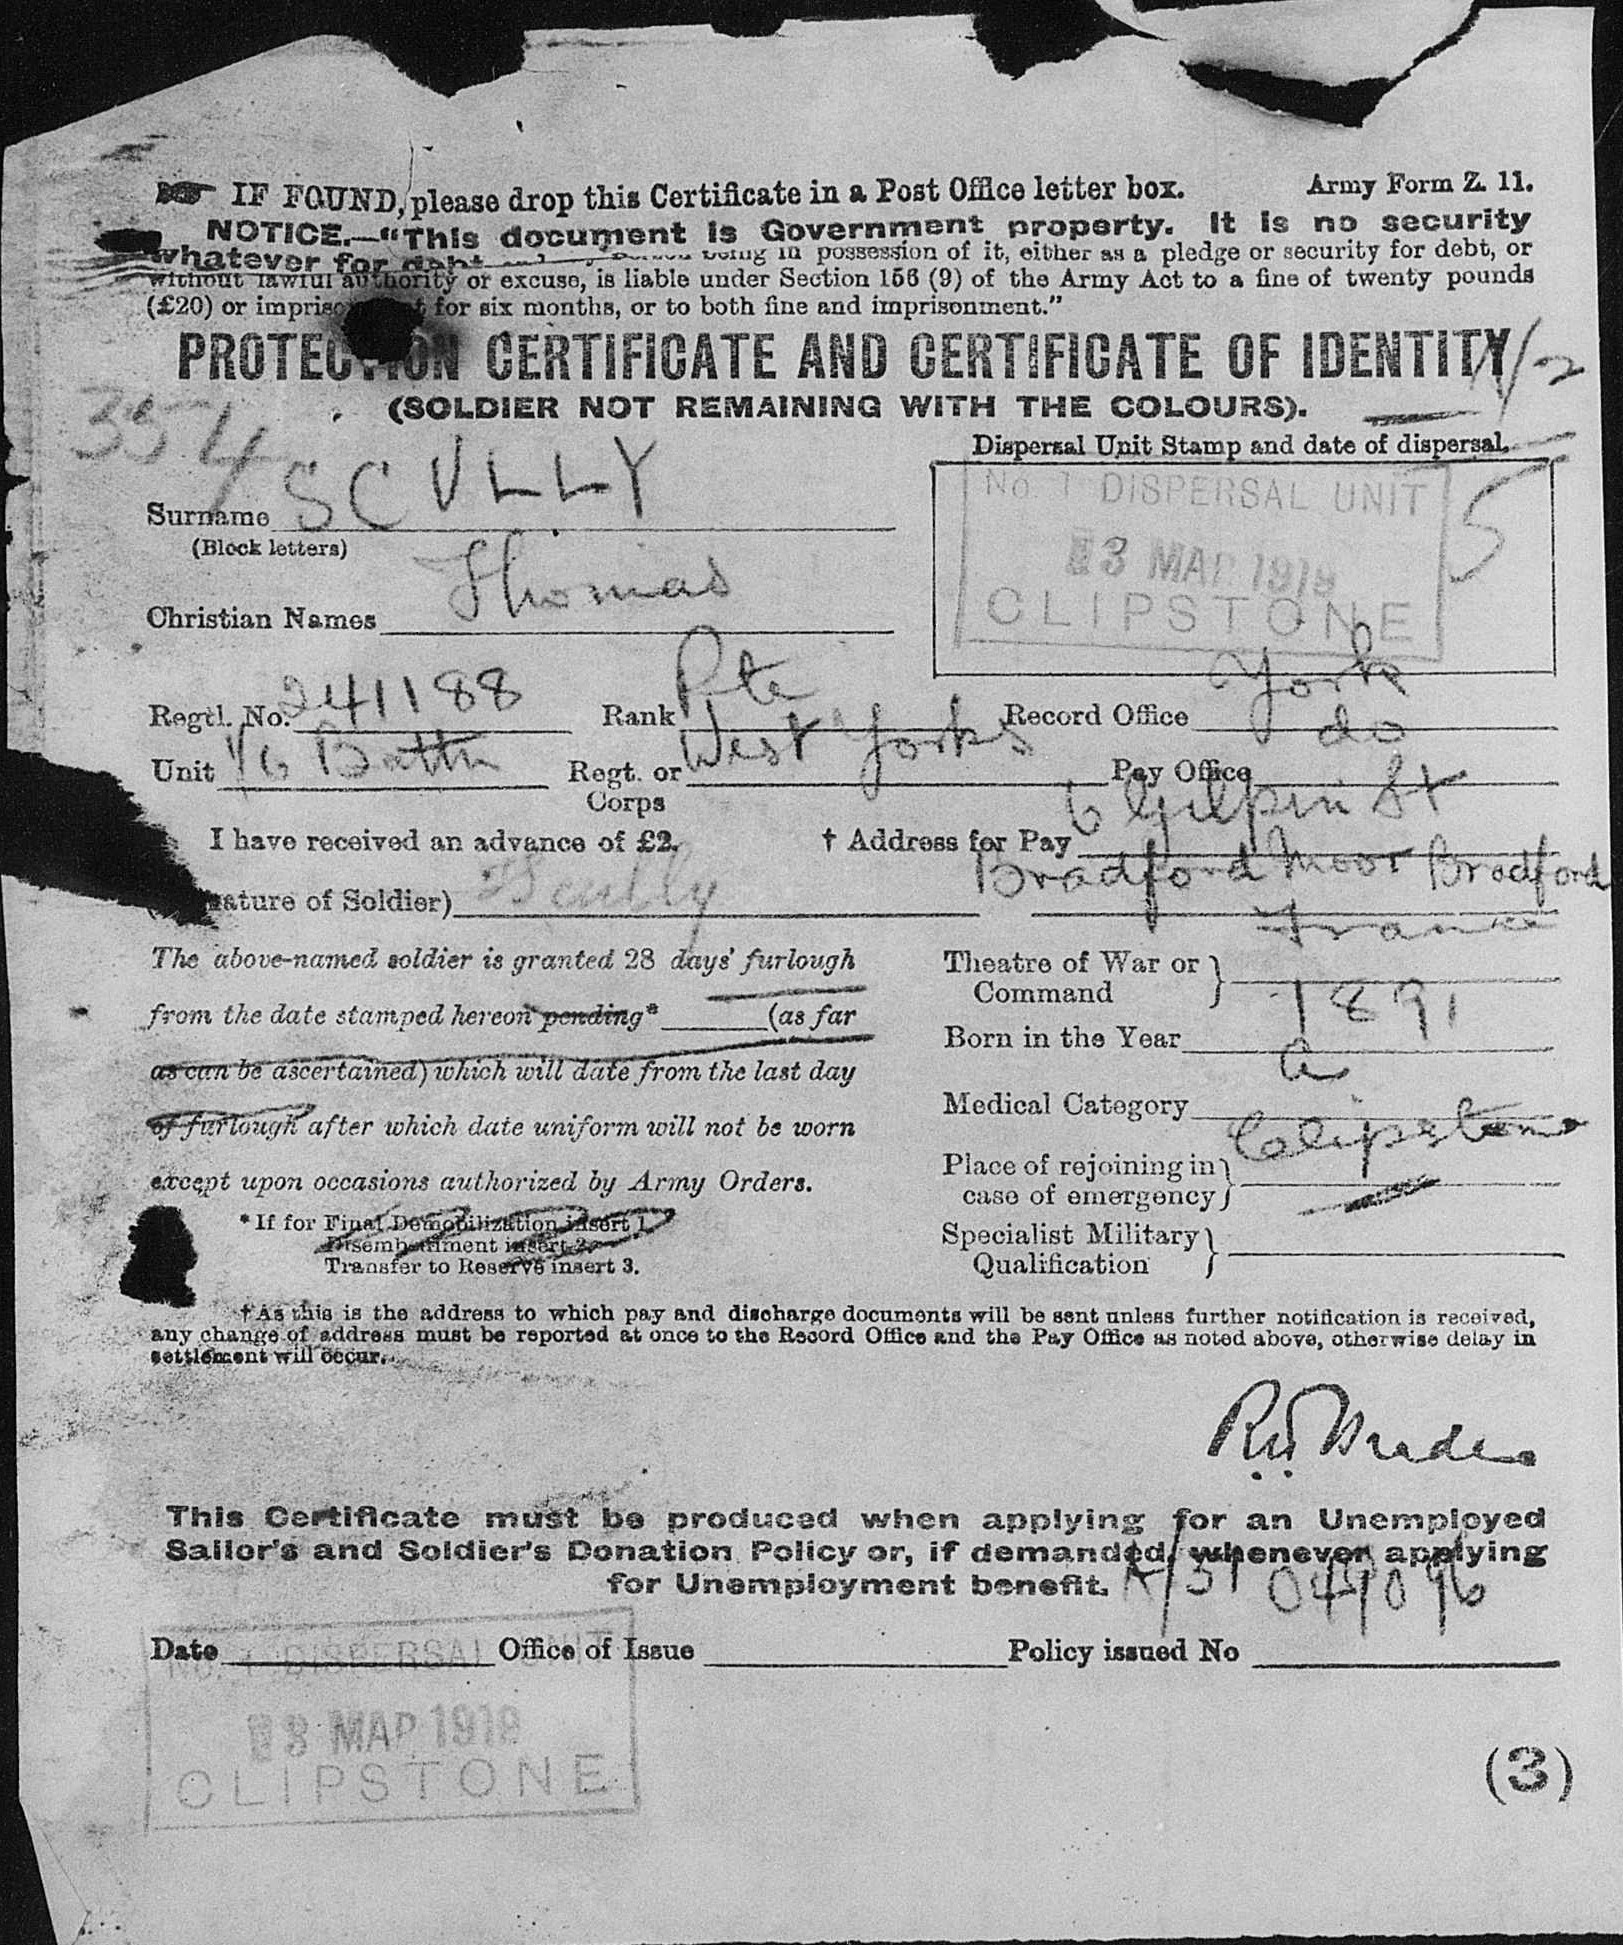 IF FOUND, please drop this Certificate in a Post Office letter box. Army Form Z. 11.
NOTICE.—"This document is Government property. It is no security
whatever for debt being in possession of it, either as a pledge or security for debt, or
without lawful authority or excuse, is liable under Section 156 (9) of the Army Act to a fine of twenty pounds
(£20) or for six months, or to both fine and imprisonment."
PROTECTION CERTIFICATE AND CERTIFICATE OF IDENTITY
(SOLDIER NOT REMAINING WITH THE COLOURS).
354
Dispersal Unit Stamp and date of dispersal.
Surname SCULLY
(Block letters)
No. 1 DISPERSAL UNIT
MAR 1919
CLIPSTONE
5
Christian Names Thomas
Regtl. No. 241188 Rank Pte Record Office York
Unit 1/6 Battn Regt. or Corps West Yorks Pay Office do
I have received an advance of £2. † Address for Pay 6 Gilpin St
Bradford Moor Bradford
ature of Soldier) TScully
The above-named soldier is granted 28 days' furlough
from the date stamped hereon pending* (as far
as can be ascertained) which will date from the last day
of furlough after which date uniform will not be worn
except upon occasions authorized by Army Orders.
*If for Final Demobilization insert 1.
Disembodiment insert 2.
Transfer to Reserve insert 3.
Theatre of War or Command France
Born in the Year 1891
Medical Category A
Place of rejoining in case of emergency Clipstone
Specialist Military Qualification
†As this is the address to which pay and discharge documents will be sent unless further notification is received,
any change of address must be reported at once to the Record Office and the Pay Office as noted above, otherwise delay in
settlement will occur.
This Certificate must be produced when applying for an Unemployed
Sailor's and Soldier's Donation Policy or, if demanded, whenever applying
for Unemployment benefit.
Date Office of Issue Policy issued No
No. 1 DISPERSAL UNIT
MAR 1919
CLIPSTONE
(3)